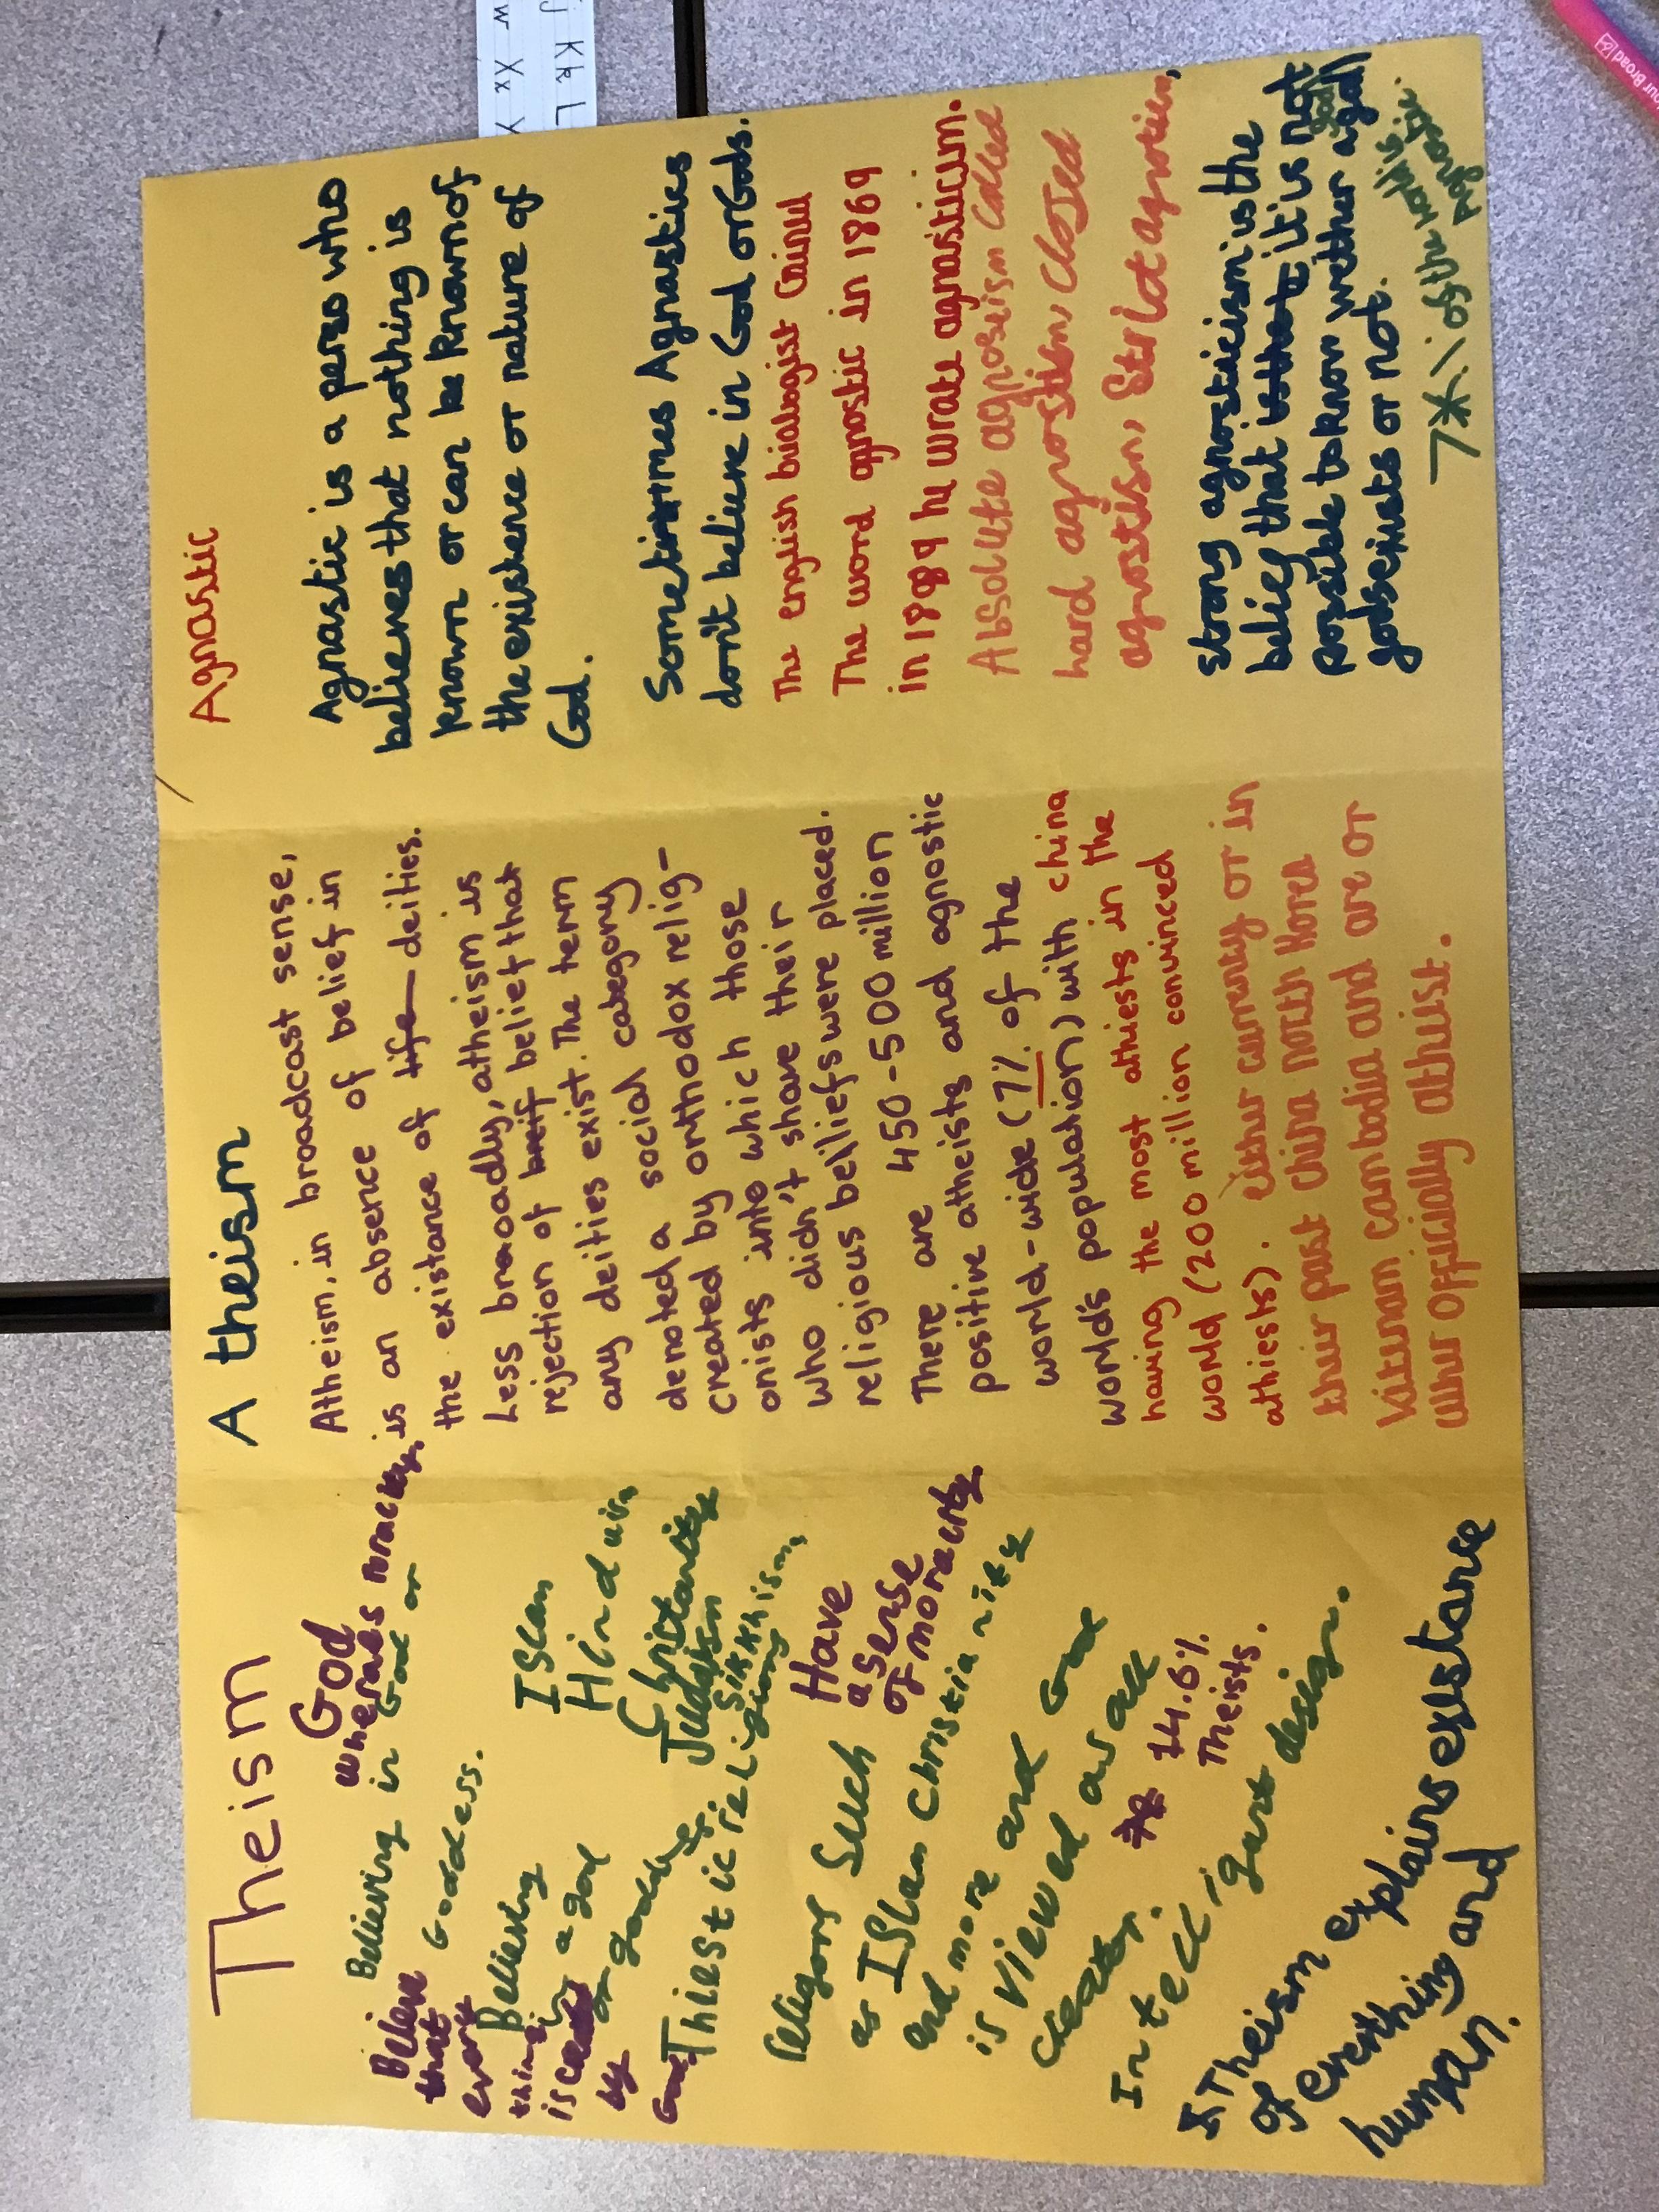 Theism
God
wheraes
Believing in God or
Goddess.
Believe
that
every
thing
is
by
God
Believing
in a god
or goddess
Islam
Hinduism
Christanity
Judaism
Sikkhism,
Thiestic religions
Have
a sense
of moreality
Religons such
as ISlam christianity
and more and God
is viewed as all
creator.
74.6%
Theists.
Intelligant design.
Theism explains existance
of everthing and
human.
A theism
Atheism, in broadcast sense,
is an absence of belief in
the existance of life deities.
Less broadly, atheism is
rejection of belif belief that
any deities exist. The term
denoted a social category
created by orthodox relig-
onists into which those
who didn't share their
religious beliefs were placed.
There are 450-500 million
positive atheists and agnostic
world-wide (7% of the
world's population) with china
having the most athiests in the
world (200 million convinced
athiests). either currently or in
their past china north Korea
Vitenam cambodia and are or
wher officially athiest.
Agnostic
Agnostic is a perso who
believes that nothing is
known or can be known of
the existence or nature of
God.
Sometimes Agnostics
don't believe in God or Gods.
The english biologist Coined
The word agnostic in 1869
in 1889 he wrote agnosticism.
Absolute agnoseism called
hard agnostism, closed
agnostism, strict agnostism,
strong agnosticism is the
belief that it is not
possible to know wether a god
gods exinsts or not.
7% of the world is
agnostic.
j Kk L
w Xx Y
our Broad